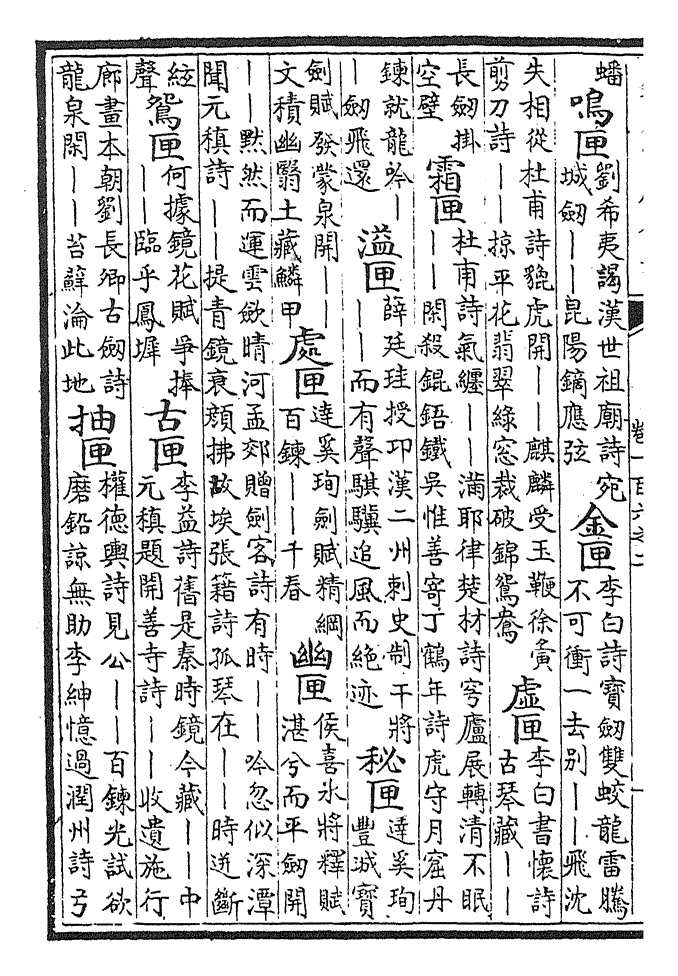 蟠鳴匣劉希夷謁漢世祖廟詩宛城劒——昆陽鏑應弦金匣李白詩寶劒雙蛟龍雷騰不可衝一去别——飛沈
失相從杜甫詩貔虎開——麒麟受玉鞭徐夤剪刀詩——掠平花翡翠綠窓裁破錦鴛鴦虚匣李白書懷詩古琴藏——
長劒掛空壁霜匣杜甫詩氣纏——滿耶律楚材詩穹廬展轉清不眠——閑殺錕鋙鐵吳惟善寄丁鶴年詩虎守月窟丹
鍊就龍吟——劒飛還溢匣薛廷珪授邛漢二州刺史制干將——而有聲騏驥追風而絶迹秘匣達奚珣豐城寶
劍賦發蒙泉開——文積幽翳土藏鱗甲處匣達奚珣劍賦精綱百鍊——千春幽匣侯喜氷將釋賦湛兮而平劒開
——黙然而運雲歛晴河孟郊贈劍客詩有時——吟忽似深潭聞元稹詩——提青鏡衰顔拂故埃張籍詩孤琴在——時迸斷
絃聲鴛匣何據鏡花賦爭捧——臨乎鳳墀古匣李益詩舊是秦時鏡今藏——中元稹題開善寺詩——收遺施行
廊畫本朝劉長卿古劒詩龍泉閑——苔蘚淪此地抽匣權德輿詩見公——百鍊光試欲磨鉛諒無助李紳憶過潤州詩弓